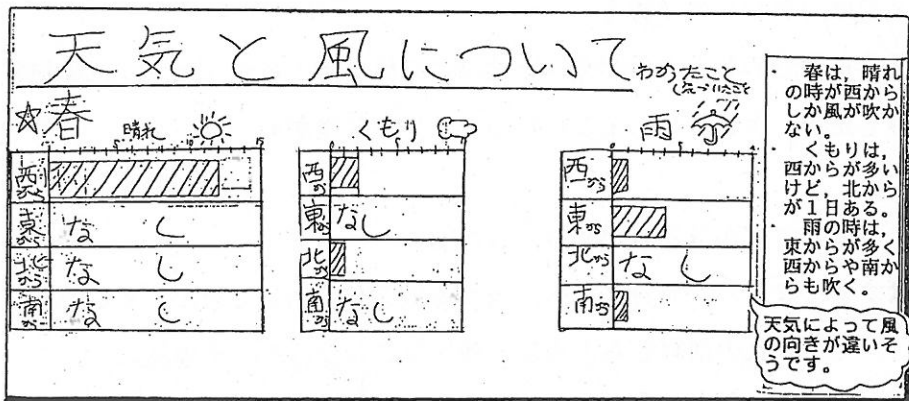 天気と風について
わかったこと
(気づいたこと
☆春
晴れ
5
10
15
西から
東から なし
北から なし
南から なし
くもり
西から
東から なし
北から
南から なし
雨
西から
東から
北から なし
南から
・ 春は，晴れ
の時が西から
しか風が吹か
ない。
・ くもりは，
西からが多い
けど，北から
が１日ある。
・ 雨の時は，
東からが多く
西からや南か
らも吹く。
天気によって風
の向きが違いそ
うです。